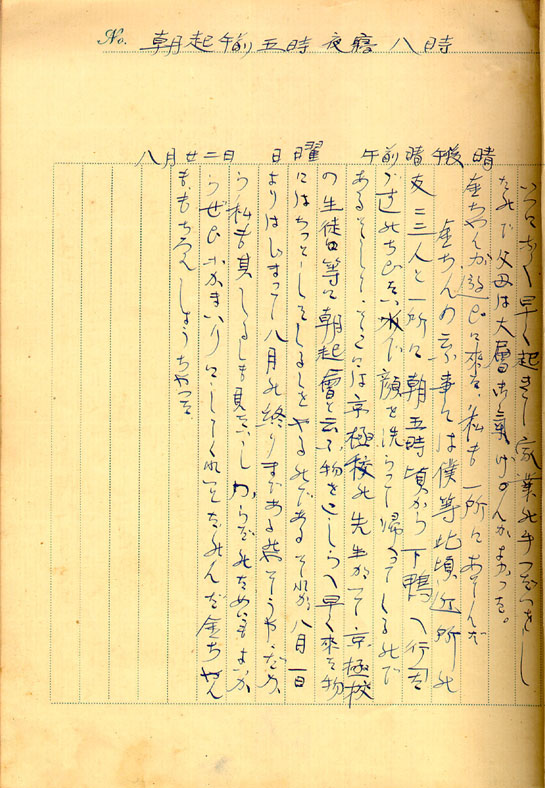 No. 朝起午前五時 夜寝 八時
八月廿二日 日曜 午前晴 午後 晴
いつになく早く起きて家業の手つだつをし
たので父母は大層お氣げんがよかつた。
金ちやんが遊びに來る、私も一所にあそんだ
金ちんの云事には僕等此頃近所の
友二三人と一所に朝五時頃から下鴨へ行つて
たちのちに水で顔を洗らつて帰へつてくるので
あるそして、そこには京極校の先生がて京極校
の生徒四等に朝起會と云ふ物をこしらへ早く來た物
にはちつとしてしるしをやるのである それが八月一日
よりはじまつて八月の終りまである然そうや、だから
私も其しるしも見たいし からだのためにもよいか
らぜひかまいりにしてくれとたのんだ金ちやん
も、もちろんしようちやつた